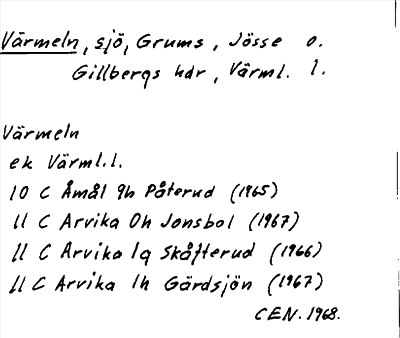 Värmeln, sjö, Grums, Jösse o.
Gillbergs hdr, Värml. l.
Värmeln
ek Värml.l.
10 C Åmål 9h Påterud (1965)
11 C Arvika 0h Jonsbol (1967)
11 C Arvika 1g Skåfterud (1966)
11 C Arvika 1h Gärdsjön (1967)
CEN. 1968.